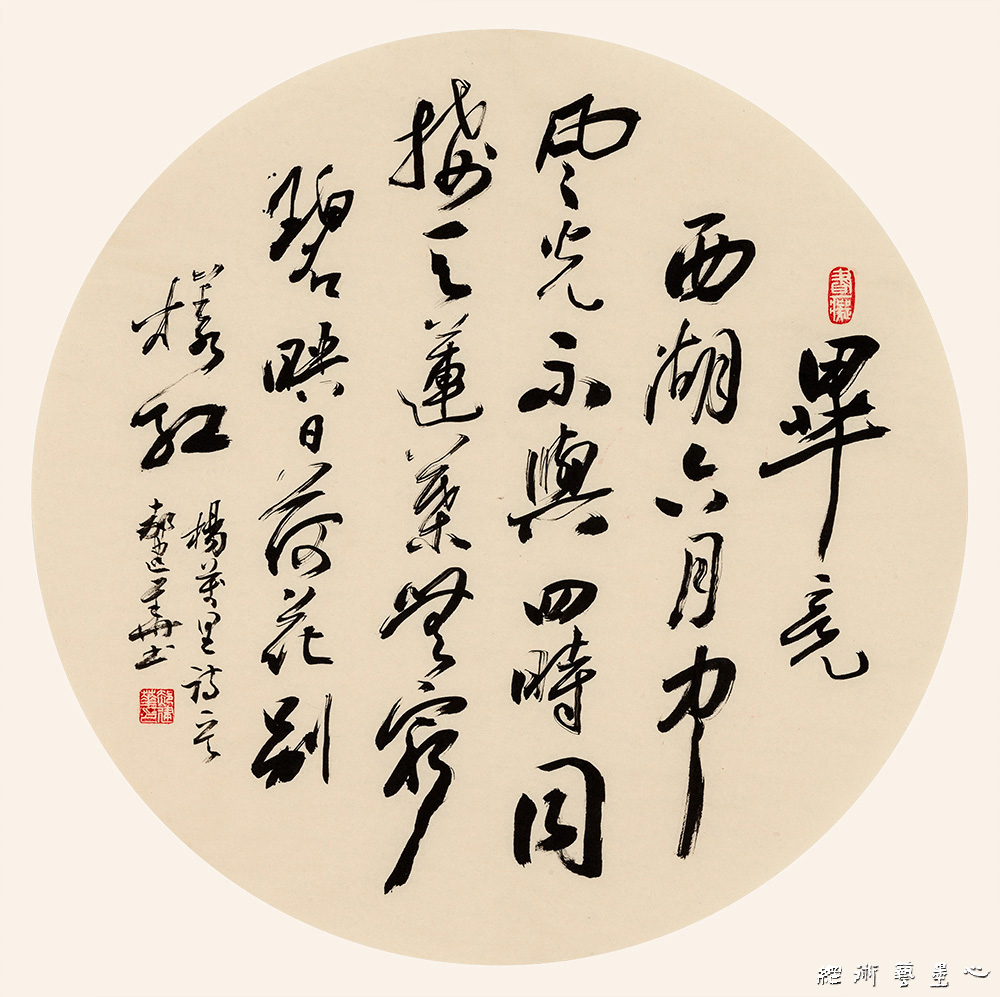 畢竟
西湖六月中
風光不與四時同
接天蓮葉無窮
碧映日荷花別
樣紅
楊萬里詩一首
郝建華書
心畫藝術